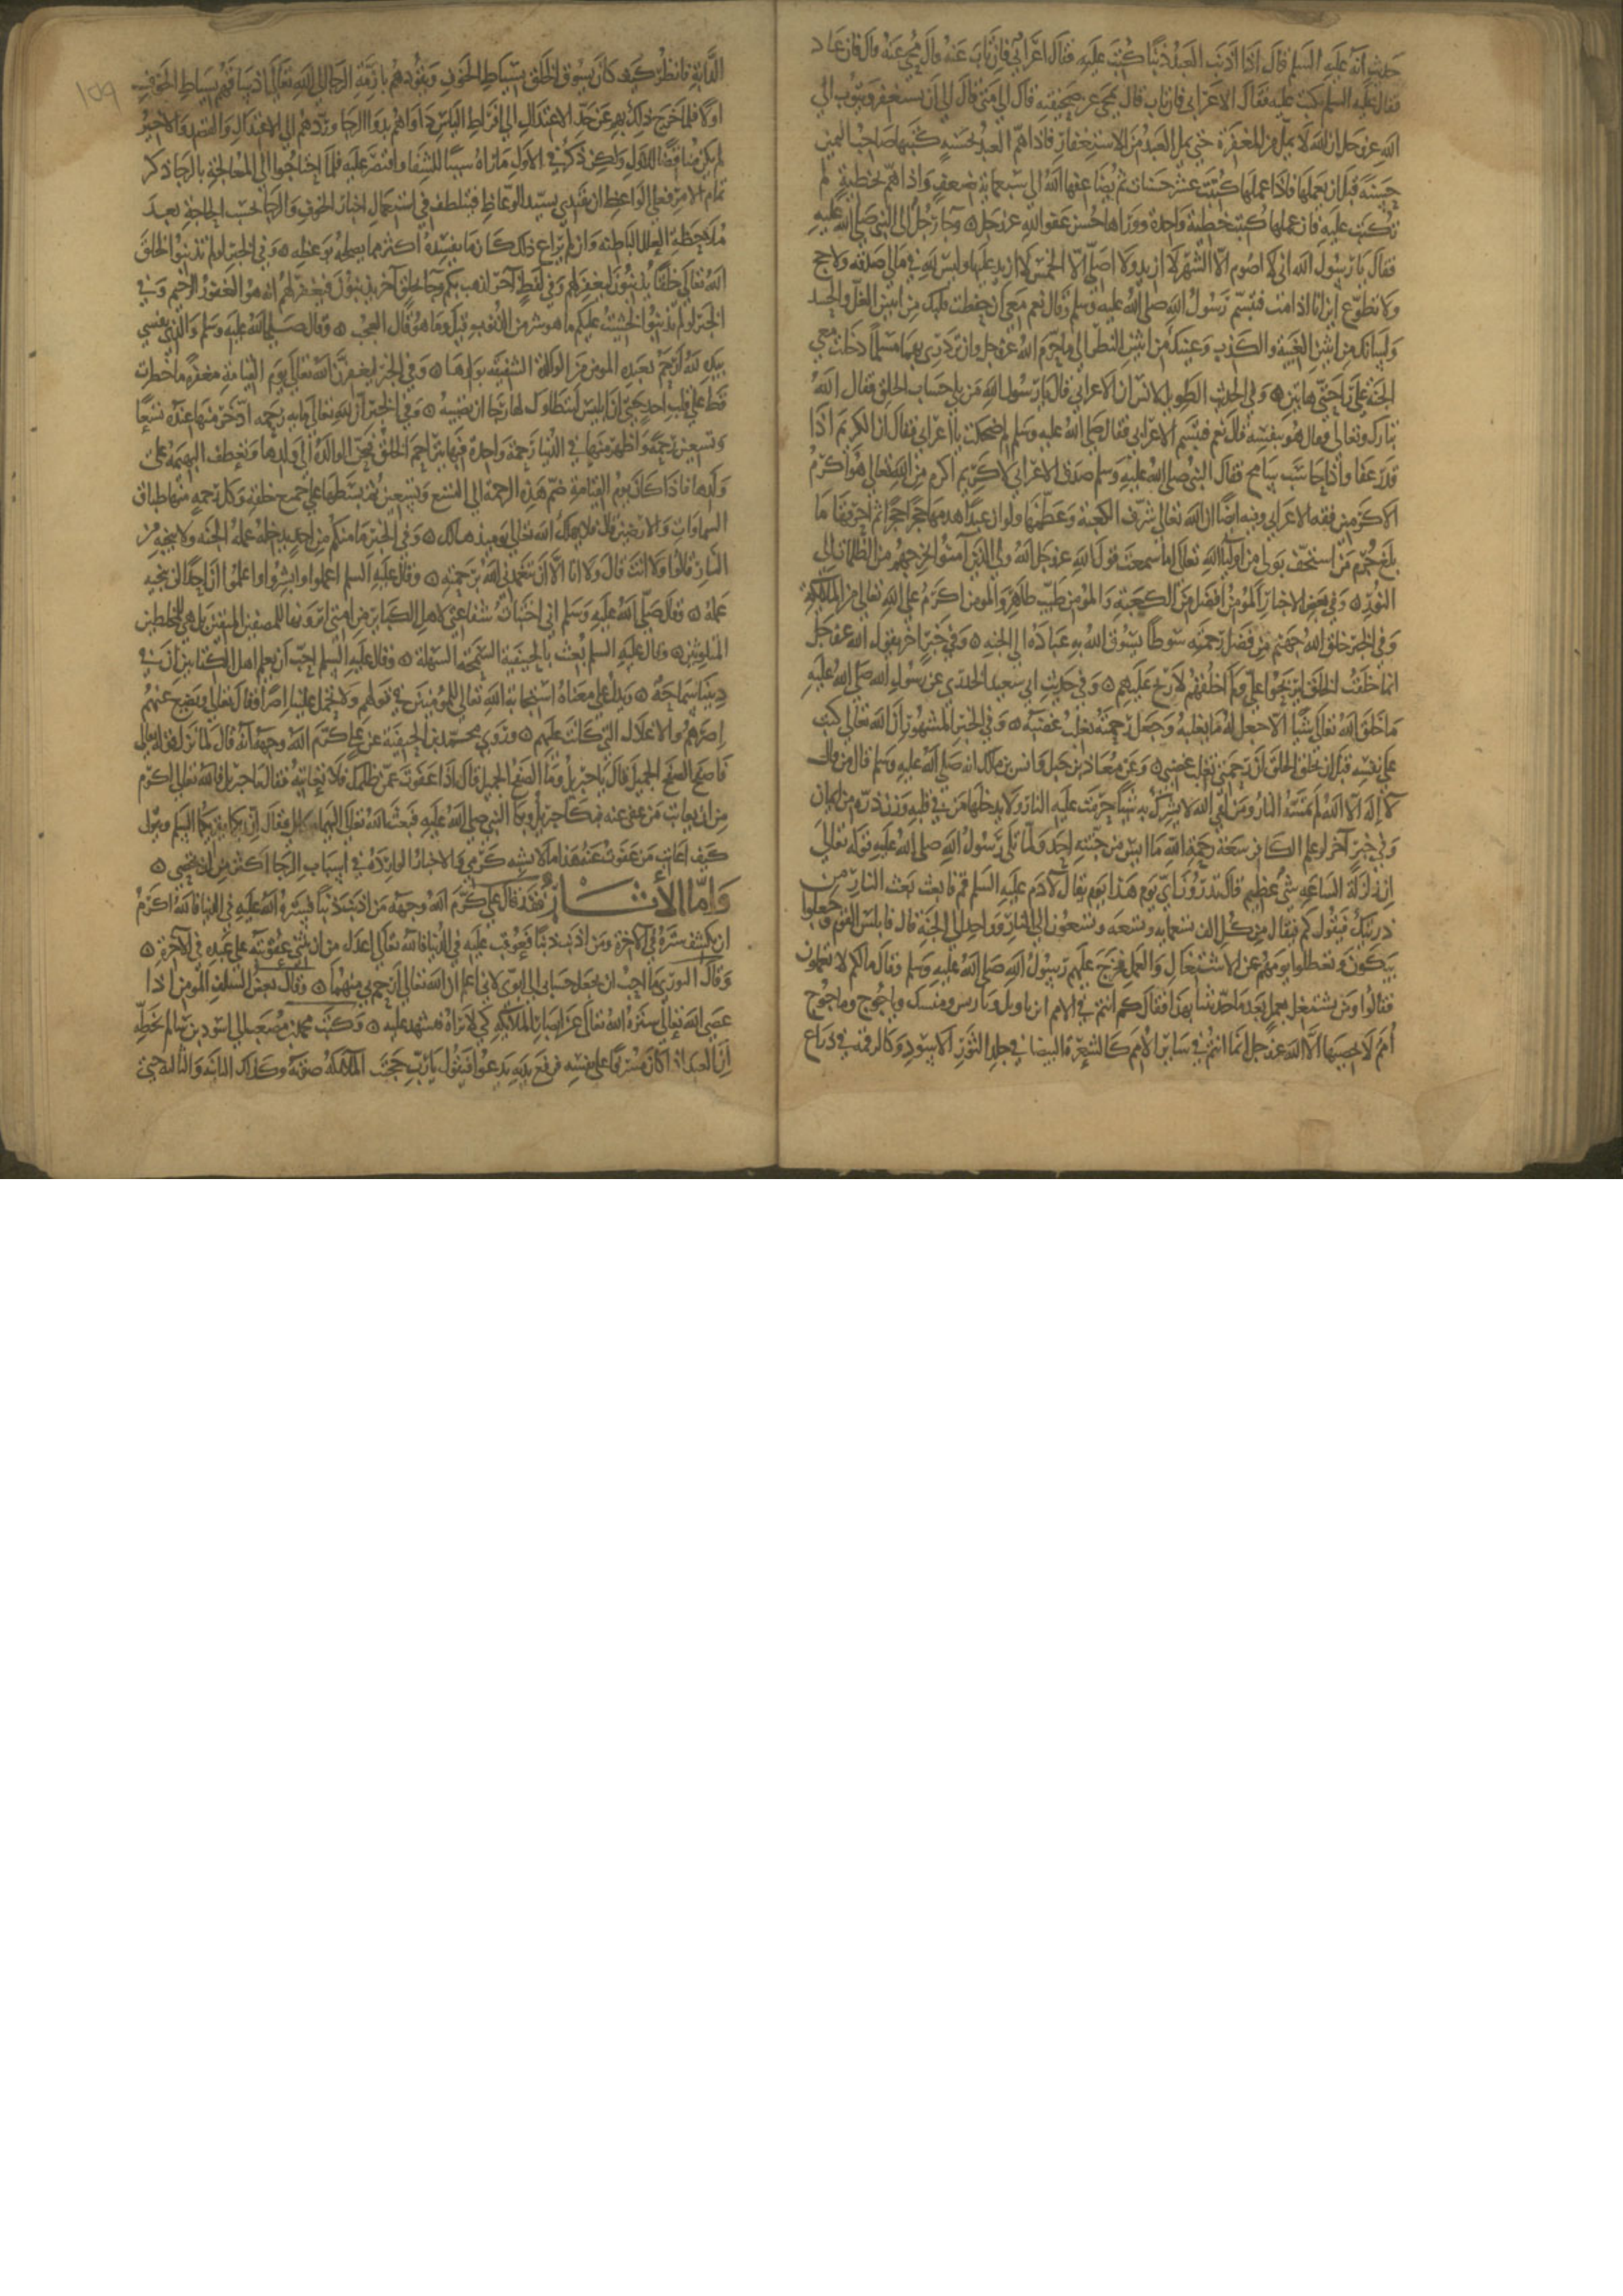 حديث أنه عليه السلم قال اذا أذنب العبد ذنبا كتب عليه فقال اعرابي فان تاب عنه قال محي عنه قال فان عاد
فقال عليه السلم كتب عليه فقال الاعرابي فان تاب قال محي عن صحيفته قال الي متى قال الي أن يستغفر ويتوب الي
الله عز وجل ان الله لا يمل من المغفرة حتى يمل العبد من الاستغفار فاذا هم العبد بحسنة كتبها صاحب اليمين
حسنة قبل ان يعملها فاذا عملها كتبت عشر حسنات ثم يضاعفها الله الي سبعماية ضعف واذا هم بخطية لم
تكتب عليه فان عملها كتبت خطية واحدة ووراها حسن عفو الله عز وجل ۞ وجا رجل الى النبي صلى الله عليه
فقال يا رسول الله اني لا اصوم الا الشهر لا ازيد ولا اصلي الا الخمس لا ازيد عليها وليس لله في مالي صدقة ولا حج
ولا تطوع اين انا اذا مت فتبسم رسول الله صلى الله عليه وسلم وقال نعم معي ان حفظت قلبك من اثنين الغل والحسد
ولسانك من اثنين الغيبة والكذب وعينك من اثنين النظر الي ما حرم الله عز وجل وان تزدري بهما مسلما دخلت معي
الجنة على راحتي هاتين ۞ وفي الحديث الطويل لانس ان الاعرابي قال يا رسول الله من يلي حساب الخلق فقال الله
تبارك وتعالى فقال هو بنفسه قال نعم فتبسم الاعرابي فقال صلى الله عليه وسلم مم ضحكت يا اعرابي فقال ان الكريم اذا
قدر عفا واذا حاسب سامح فقال النبي صلى الله عليه وسلم صدق الاعرابي لا كريم اكرم من الله تعالى هو اكرم
الاكرمين فقه الاعرابي وفيه ايضا ان الله تعالى شرف الكعبة وعظمها ولو ان عبدا هدمها حجرا حجرا ثم احرقها ما
بلغ جرم من استخف بولي من اوليا الله تعالى اما سمعت قول الله عز وجل الله ولي الذين آمنوا يخرجهم من الظلمات الي
النور ۞ وفي بعض الاخبار المؤمن افضل من الكعبة والمؤمن طيب طاهر والمومن اكرم على الله تعالى من الملايكة
وفي الخبر خلق الله جهنم من فضل رحمته سوطا يسوق الله به عباده الي الجنه ۞ وفي خبر آخر يقول الله عز وجل
انما خلقت الخلق ليربحوا علي ولم اخلقهم لاربح عليهم ۞ وفي حديث ابي سعيد الخدري عن رسول الله صلى الله عليه
ما خلق الله تعالى شيا الا جعل له ما يغلبه وجعل رحمته تغلب غضبه ۞ وفي الخبر المشهور ان الله تعالى كتب
على نفسه قبل ان يخلق الخلق ان رحمتي تغلب غضبي ۞ وعن معاذ بن جبل وانس بن مالك انه صلى الله عليه وسلم قال من قال
لا اله الا الله لم تمسه النار ومن لقي الله لا يشرك به شيا حرمت عليه النار ولا يدخلها من في قلبه وزن ذرة من ايمان
وفي خبر آخر لو علم الكافر سعة رحمة الله ما ايس من جنته احد ولما تلى رسول الله صلى الله عليه قوله تعالى
ان زلزلة الساعة شي عظيم قال تدرون اي يوم هذا يوم يقال لادم عليه السلم قم فابعث بعث النار من
ذريتك فيقول كم فيقال من كل الف تسعمايه وتسعه وتسعون الي النار وواحد الي الجنة قال فابلس القوم وجعلوا
يبكون وتعطلوا يومهم عن الاشتغال والعمل فخرج عليهم رسول الله صلى الله عليه وسلم وقال ما لكم لا تعملون
فقالوا ومن يشتغل بعمل بعد ما حدثتنا بهذا فقال كم انتم في الامم اين تاويل وتاريس ومنسك وياجوج وماجوج
أمم لا يحصيها الا الله عز وجل انما انتم في ساير الامم كالشعرة البيضا في جلد الثور الاسود وكالرقمة في ذراع
١٥٩
الدابة فانظر كيف كان يسوق الخلق بسياط الخوف ويقودهم بازمة الرجا الى الله تعالى اذ ساقهم بسياط الخوف
اولا فلما خرج ذلك بهم عن حد الاعتدال الي افراط الياس داواهم بدوا الرجا وردهم الي الاعتدال والقصد والاخير
لم يكن مناقضا للاول ولكن ذكر في الاول ما رآه سببا للشفا واقتصر عليه فلما احتاجوا الى المعالجة بالرجا ذكر
تمام الامر فعلى الواعظ ان يقتدي بسيد الوعاظ فيتلطف في استعمال اخبار الخوف والرجا بحسب الحاجة بعد
ملاحظة العلل الباطنة وان لم يراع ذلك كان ما يفسده اكثر مما يصلحه بوعظه ۞ وفي الخبر لو لم تذنبوا لخلق
الله تعالى خلقا يذنبون ليغفر لهم وفي لفظ آخر لذهب بكم وجا بخلق آخر يذنبون فيغفر لهم انه هو الغفور الرحيم وفي
الخبر لو لم تذنبوا لخشيت عليكم ما هو شر من الذنوب قيل وما هو قال العجب ۞ وقال صلى الله عليه وسلم والذي نفسي
بيده لله ارحم بعبده المومن من الوالدة الشفيقة بولدها ۞ وفي الخبر ليغفرن الله تعالى يوم القيامة مغفرة ما خطرت
قط على قلب احد حتى ان ابليس ليتطاول لها رجا ان تصيبه ۞ وفي الخبر ان لله تعالى ماية رحمه ادخر منها عنده تسعا
وتسعين رحمة واظهر منها في الدنيا رحمة واحدة فبها يتراحم الخلق فتحن الوالدة الى ولدها وتعطف البهيمة على
ولدها فاذا كان يوم القيامة ضم هذه الرحمة الي التسع وتسعين ثم بسطها على جميع خلقه وكل رحمة منها طباق
السماوات والارضين قال فلا يهلك على الله تعالى يوميذ الا هالك ۞ وفي الخبر ما منكم من احد يدخله عمله الجنة ولا ينجيه من
النار قالوا ولا انت قال ولا انا الا ان يتغمدني الله برحمته ۞ وقال عليه السلم اعملوا وابشروا واعلموا ان احدا لن ينجيه
عمله ۞ وقال صلى الله عليه وسلم اني اختبات شفاعتي لاهل الكباير من امتي اترونها للمصفين المتقين بل هي للمخلطين
المتلوثين ۞ وقال عليه السلم بعثت بالحنيفية السمحة السهلة ۞ وقال عليه السلم احب ان يعلم اهل الكتابين ان في
ديننا سماحة ۞ ويدل على معناه استجابة الله تعالى للمومنين في قولهم ولا تحمل علينا اصرا فقال تعالى ويضع عنهم
اصرهم والاغلال التي كانت عليهم ۞ وروي محمد بن الحنفية عن علي كرم الله وجهه انه قال لما نزل قوله تعالى
فاصفح الصفح الجميل قال يا جبريل وما الصفح الجميل قال اذا عفوت عمن ظلمك فلا تعاتبه فقال يا جبريل فالله تعالى اكرم
من ان يعاتب من عفى عنه فبكا جبريل وبكا النبي صلى الله عليه فبعث الله تعالى اليهما ميكاييل فقال ان ربكما يقريكما السلم ويقول
كيف اعاتب من عفوت عنه هذا ما لا يشبه كرمي والاخبار الواردة في اسباب الرجا اكثر من ان تحصى ۞
وأما الأثار فقد قال علي كرم الله وجهه من اذنب ذنبا فستره الله عليه في الدنيا فالله اكرم
ان يكشف ستره في الاخرة ومن اذنب ذنبا فعوقب عليه في الدنيا فالله تعالى اعدل من ان يثني عقوبته على عبده في الآخرة ۞
وقال الثوري ما احب ان يجعل حسابي الي ابوي لاني اعلم ان الله تعالى ارحم بي منهما ۞ وقال بعض السلف المومن اذا
عصى الله تعالى ستره الله تعالى عن ابصار الملايكة كي لا تراه فتشهد عليه ۞ وكتب محمد بن مصعب الي اسود بن سالم بخطه
ان العبد اذا كان مسرفا على نفسه فرفع يديه يدعوا فيقول يا رب حجبت الملايكة صوته وكذلك الثانية والثالثة حتى